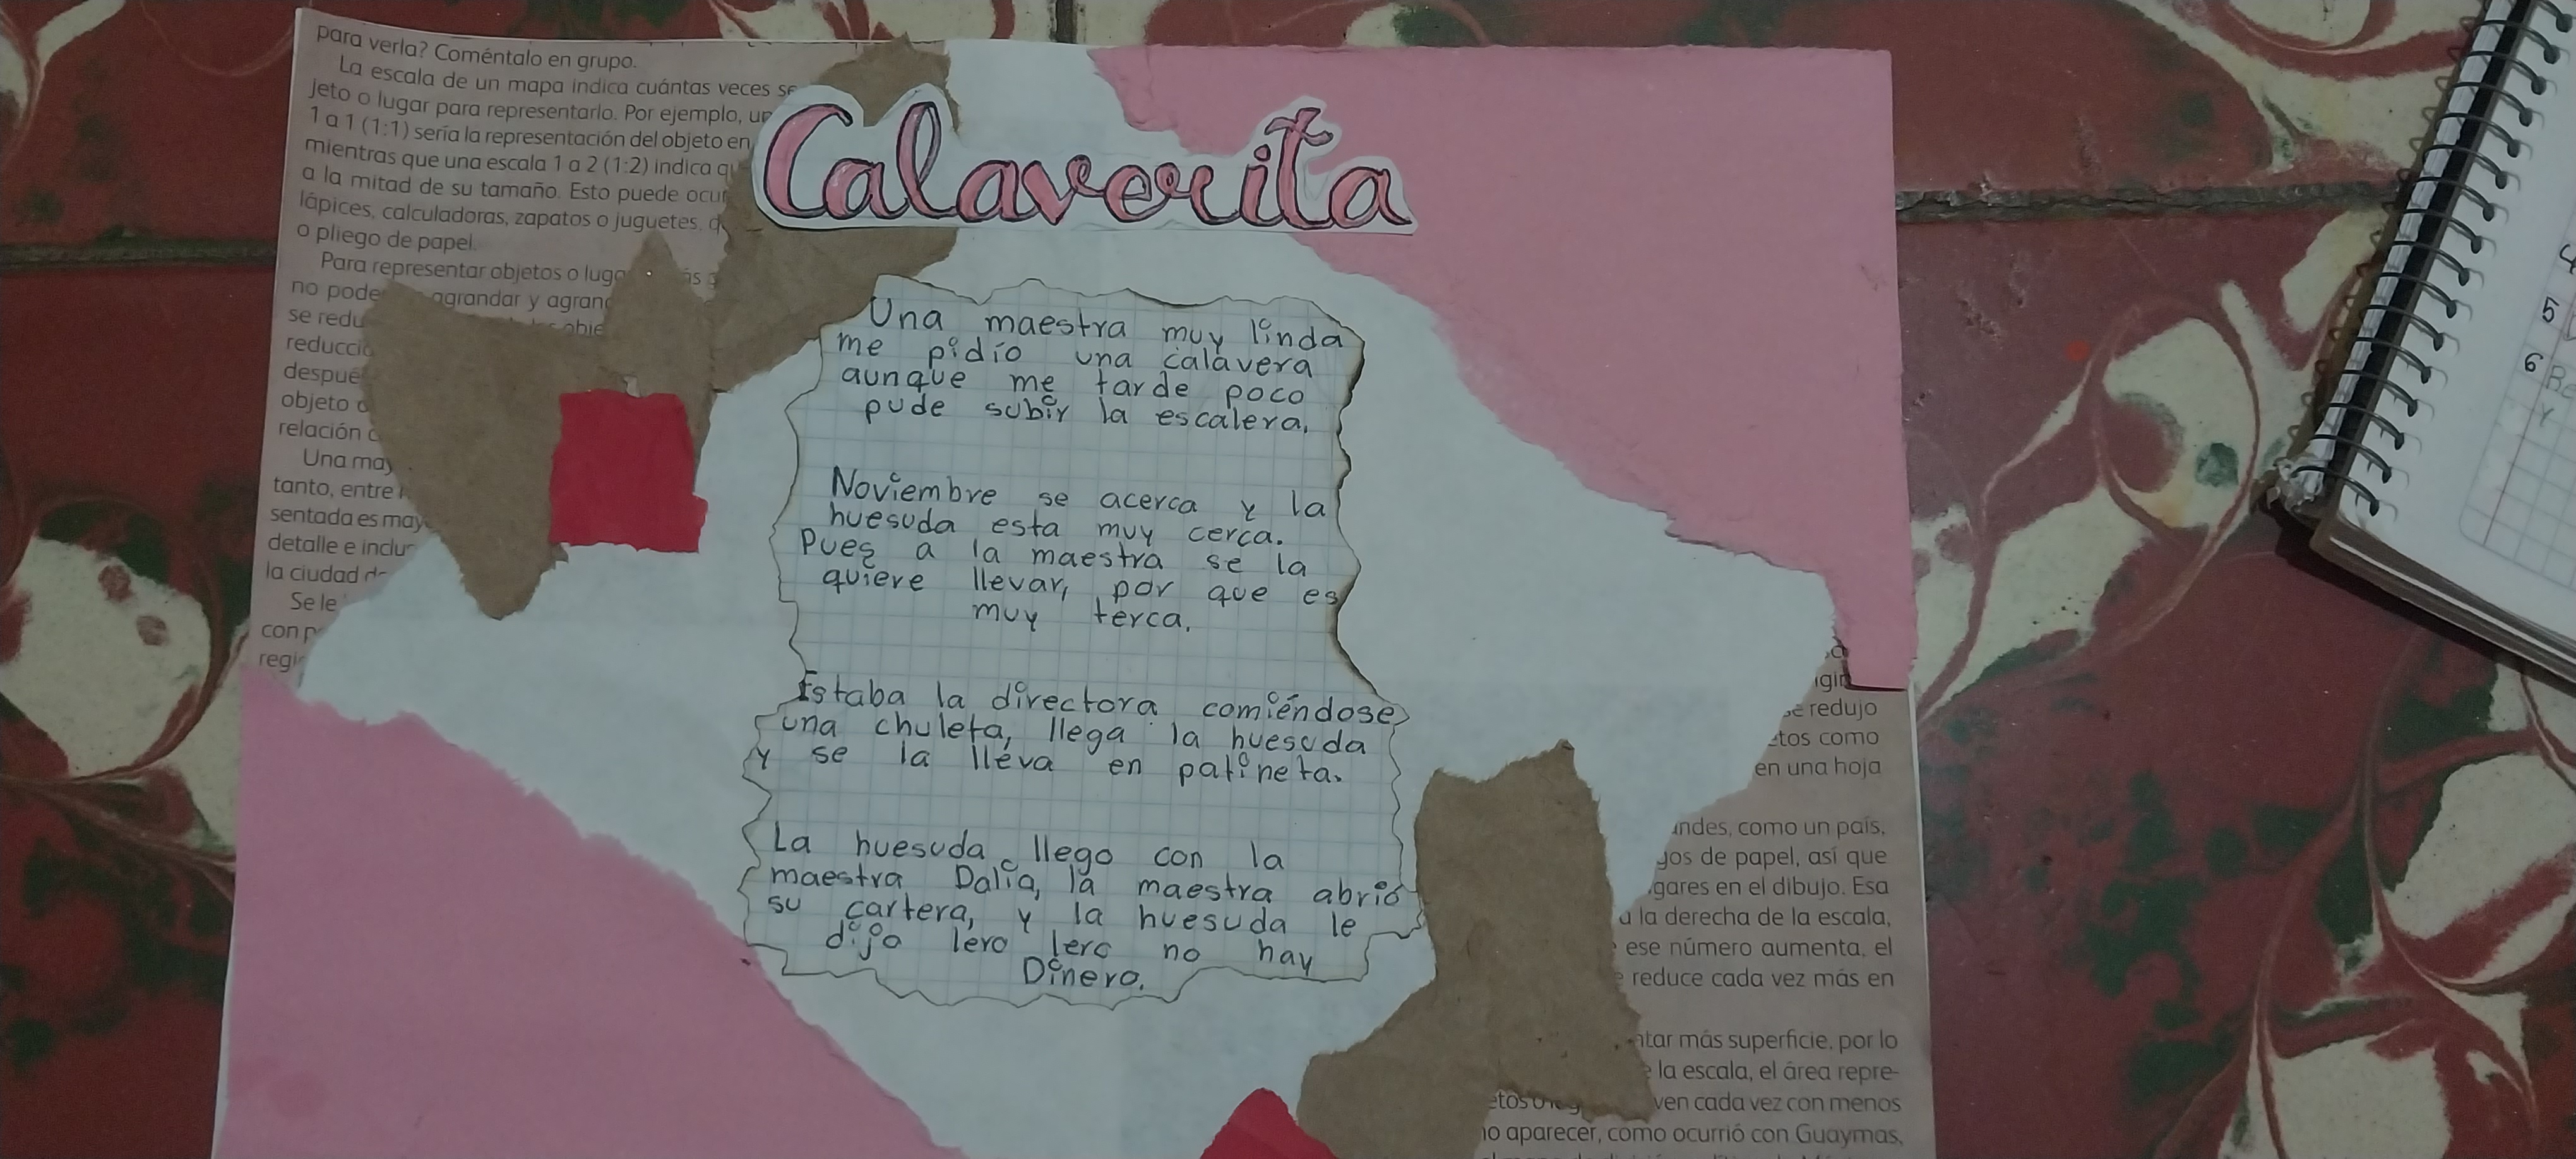 para verla? Coméntalo en grupo.
La escala de un mapa indica cuántas veces se
jeto o lugar para representarlo. Por ejemplo, un
1 a 1 (1:1) sería la representación del objeto en
mientras que una escala 1 a 2 (1:2) indica
a la mitad de su tamaño. Esto puede
lápices, calculadoras, zapatos o juguetes,
o pliego de papel.
Para representar objetos o
no agrandar y
se
después
objeto
relación
Una
tanto, entre
sentada es
detalle e
la ciudad
Se le
con
Calaverita
Una maestra muy linda
me pidío una calavera
aunque me tarde poco
pude subir la escalera.
Noviembre se acerca y la
huesuda esta muy cerca.
Pues a la maestra se la
quiere llevar, por que es
muy terca.
Estaba la directora comiéndose
una chuleta, llega la huesuda
y se la lleva en patineta.
La huesuda llego con la
maestra Dalia, la maestra abrió
su cartera, y la huesuda le
dijo lero lero no hay
Dinero.
se redujo
como
en una hoja
como un país,
de papel, así que
en el dibujo. Esa
a la derecha de la escala,
ese número aumenta, el
reduce cada vez más en
más superficie, por lo
la escala, el área repre-
ven cada vez con menos
aparecer, como ocurrió con Guaymas,
4
5
6
y